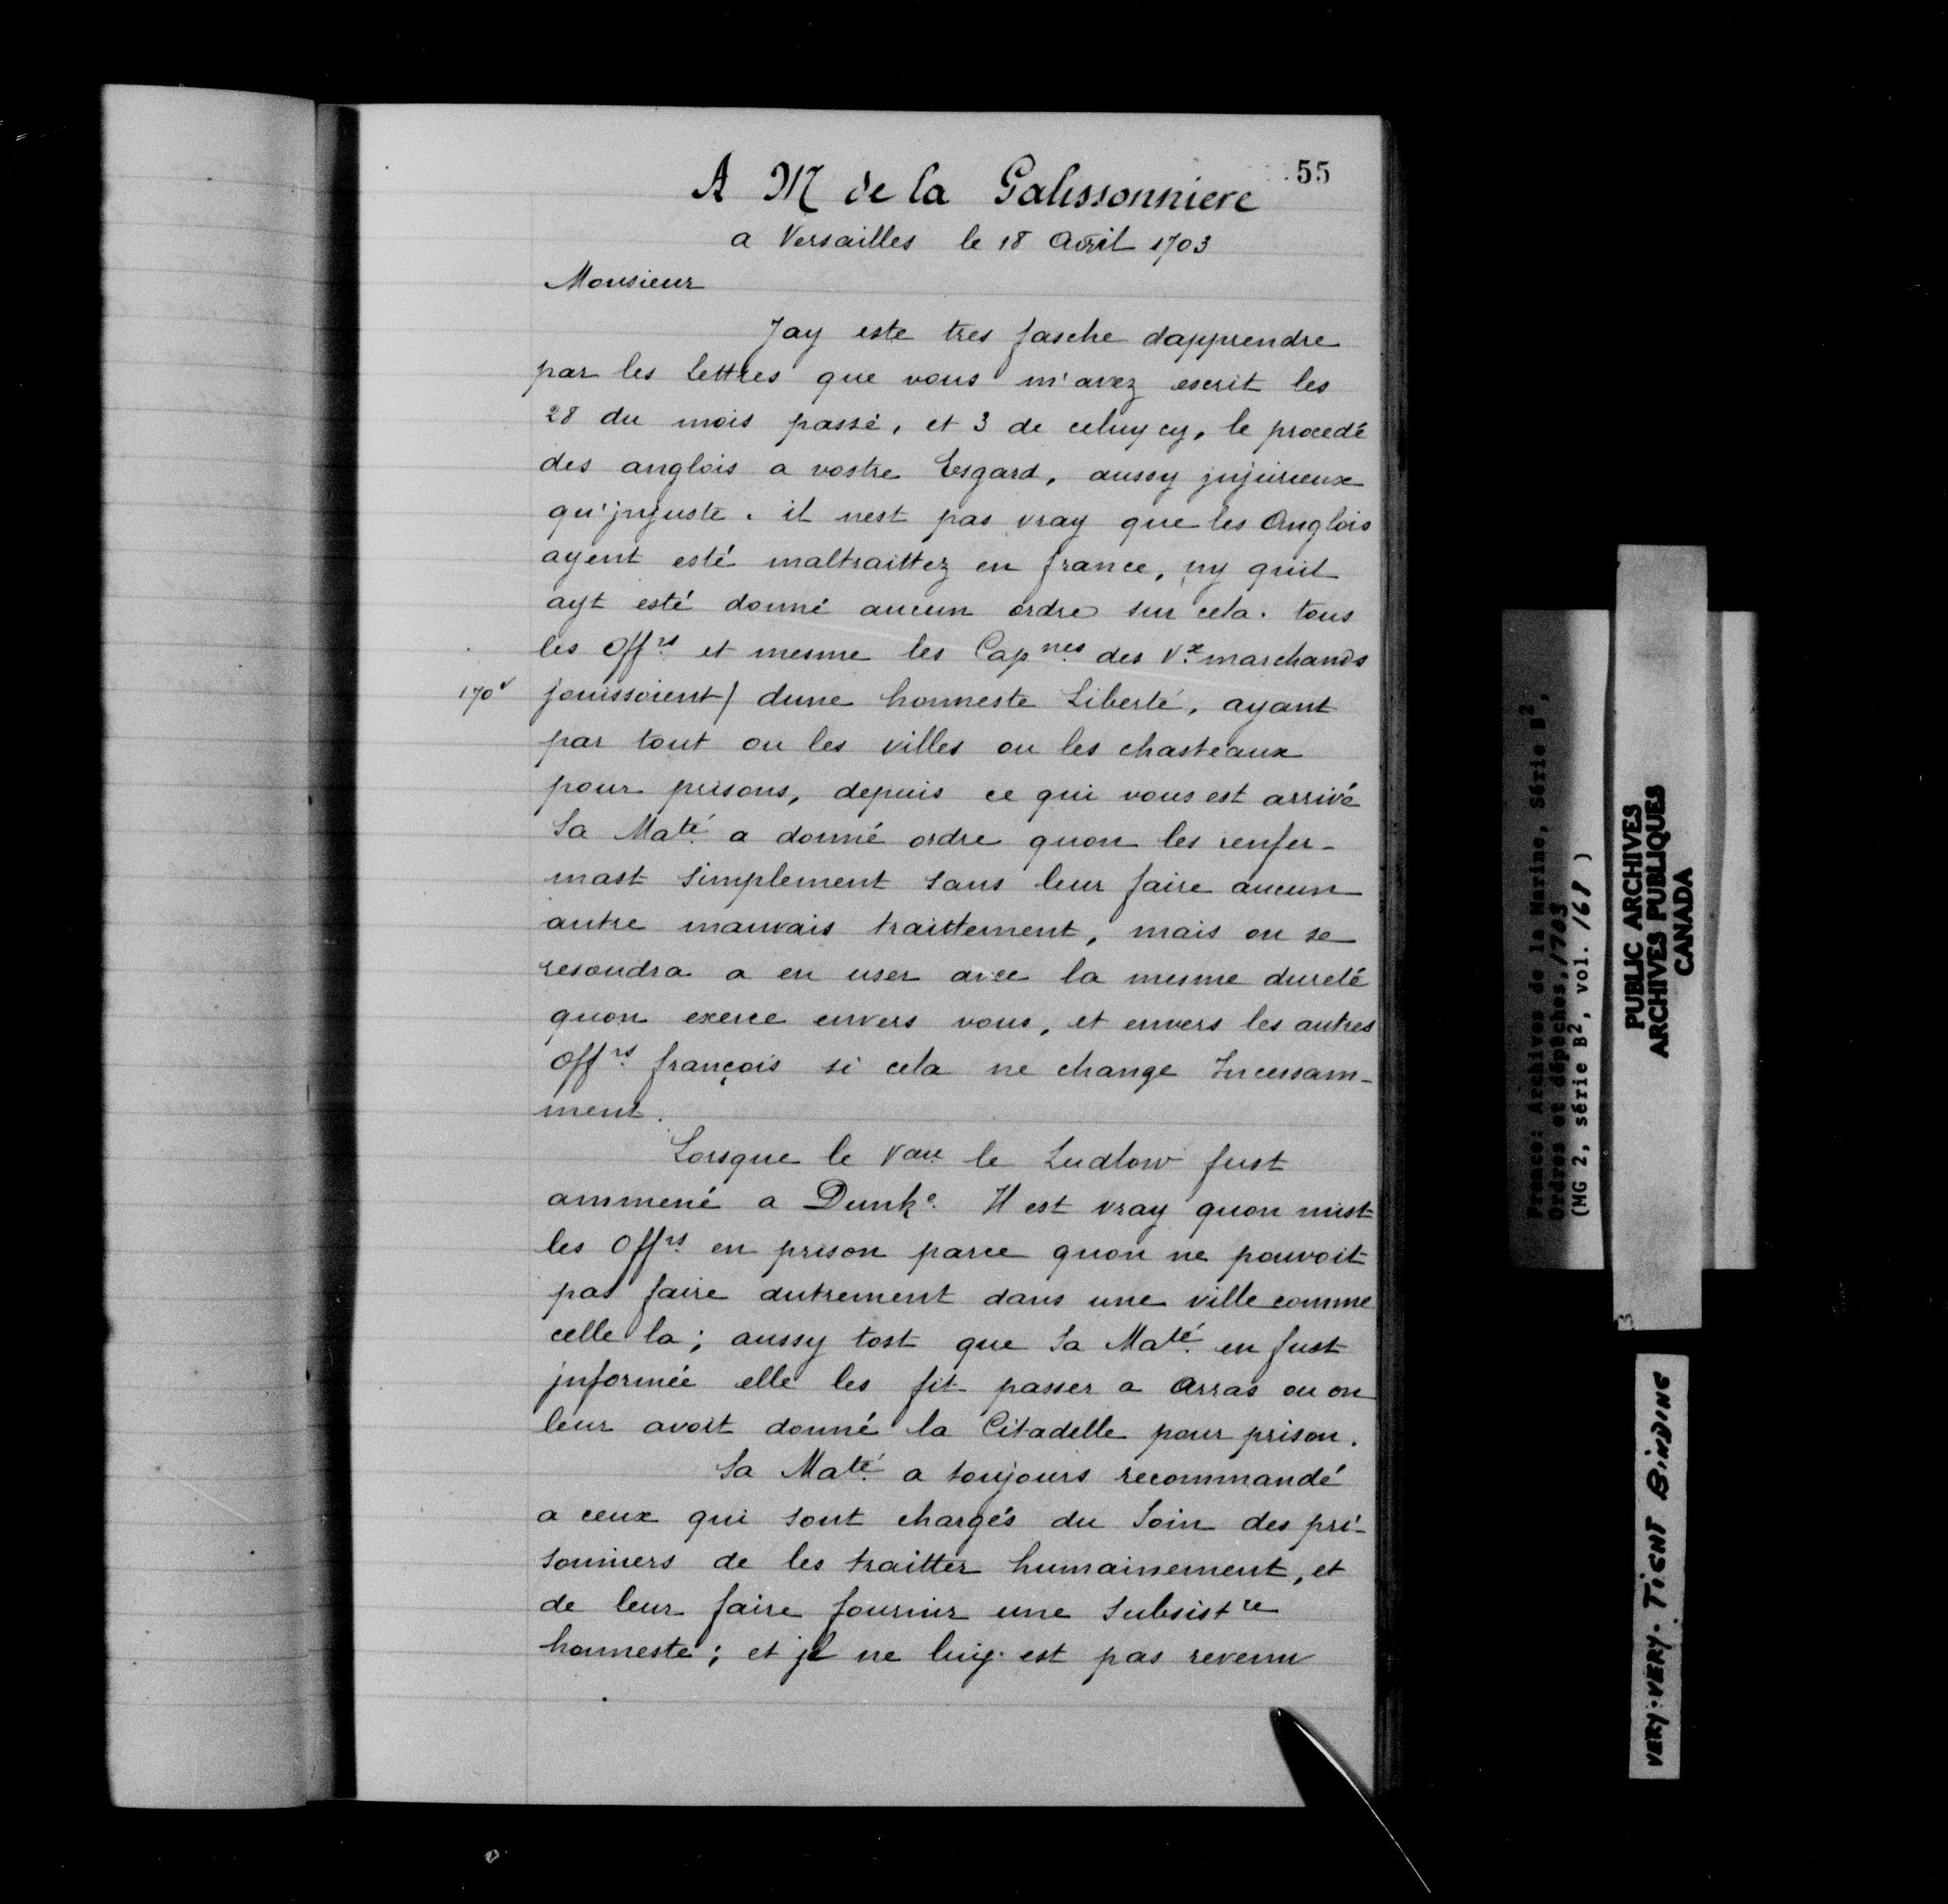 55
A M de la Galissonniere
a Versailles le 18 Avril 1703
Monsieur
Jay este tres fasche dapprendre
par les lettres que vous m'avez escrit les
28 du mois passé, et 3 de celuy cy, le procedé
des anglois a vostre Esgard, aussy jnjurieux
qu'jnjuste. il nest pas vray que les Anglois
ayent esté maltraittez en france, ny quil
ayt esté donné aucun ordre sur cela. tous
les Offrs et mesme les Capnes des Vx marchands
170v jouissoient/ dune honneste Liberté, ayant
par tout ou les villes ou les chasteaux
pour prisons, depuis ce qui vous est arrivé
Sa Maté a donné ordre quon les renfer-
mast simplement sans leur faire aucun
autre mauvais traittement, mais on se
resoudra a en user avec la mesme dureté
quon exerce envers vous, et envers les autres
Offrs françois si cela ne change Incessam-
ment.
Lorsque le Vau le Ludlow fust
ammené a Dunke Il est vray quon mist
les Offrs en prison parce quon ne pouvoit
pas faire autrement dans une ville comme
celle la; aussy tost que Sa Maté en fust
jnformée elle les fit passer a Arras ou on
leur avoit donné la Citadelle pour prison.
Sa Maté a toujours recommandé
a ceux qui sont chargés du Soin des pri-
sonniers de les traitter humainement, et
de leur faire fournir une subsistce
honneste; et jl ne luy est pas revenu
France: Archives de la Marine, Série B2,
Ordres et dépêches, 1703
(MG 2, série B2, vol. 168 )
PUBLIC ARCHIVES
ARCHIVES PUBLIQUES
CANADA
3
VERY-VERY-TIGHT BINDING